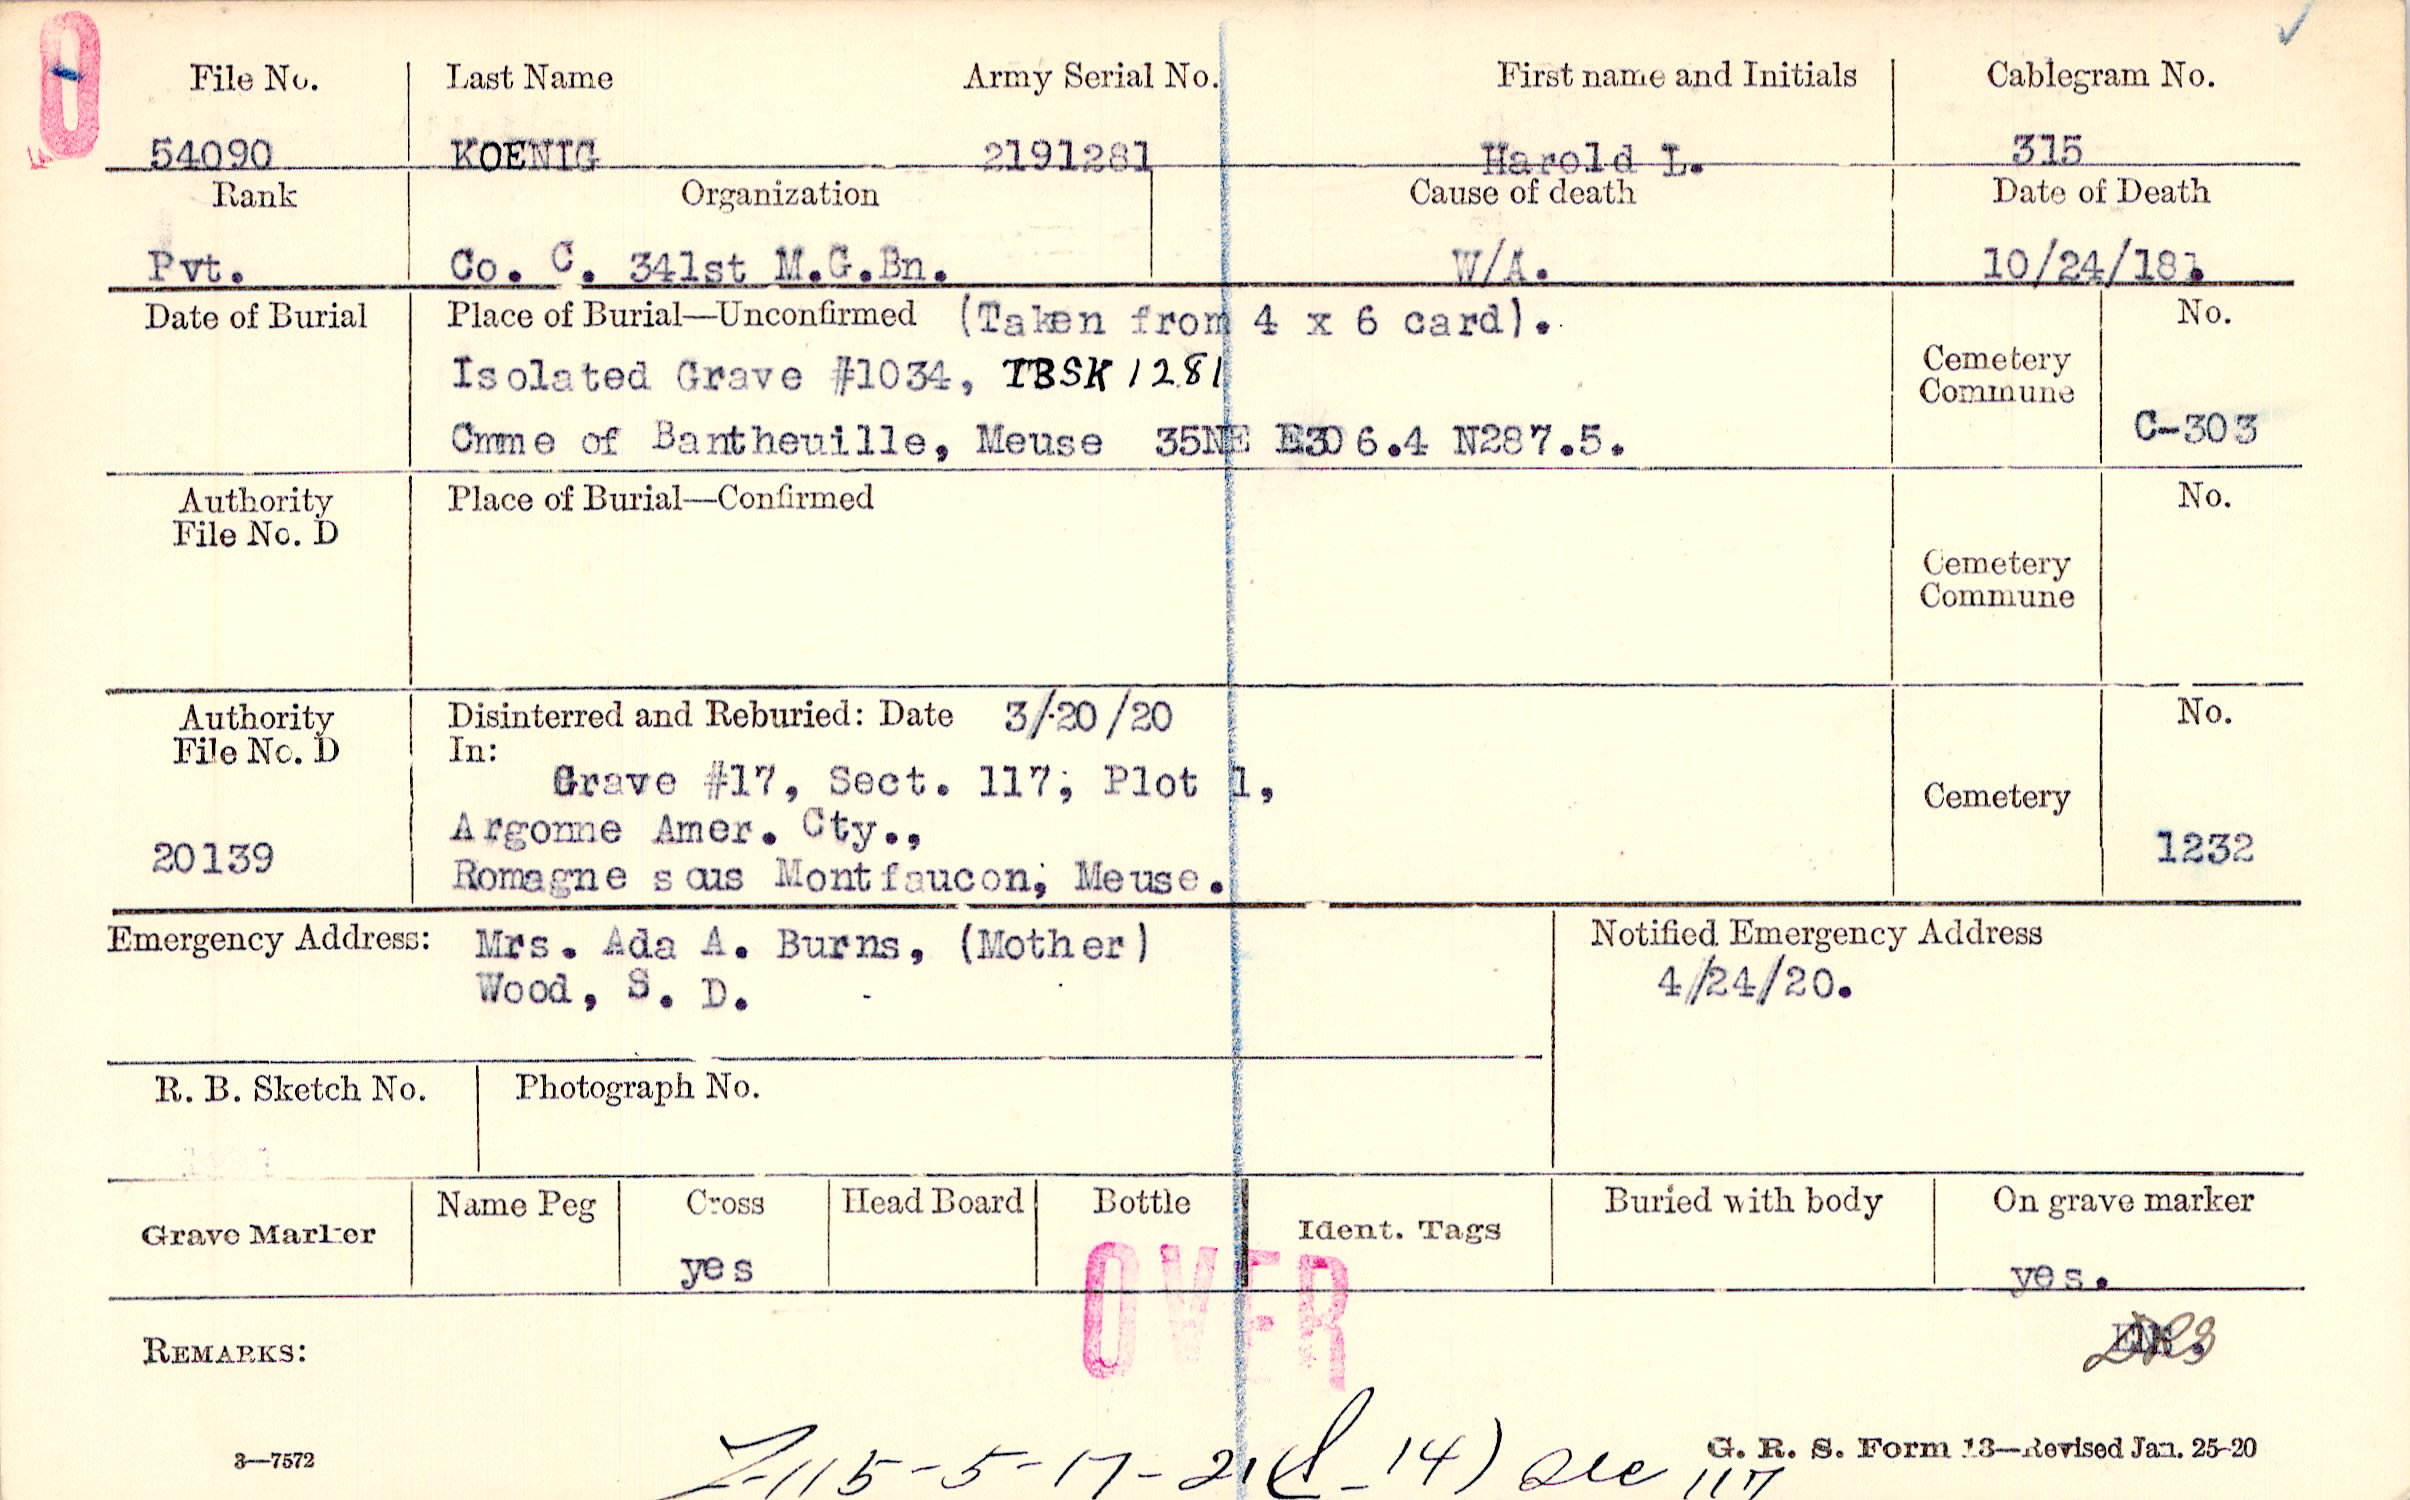 O
File No. Last Name Army Serial No. First name and Initials Cablegram No.
54090 KOENIG 2191281 Harold L. 315
Rank Organization Cause of death Date of Death
Pvt. Co. C. 341st M.G.Bn. W/A. 10/24/18.
Date of Burial Place of Burial—Unconfirmed (Taken from 4 x 6 card). No.
Isolated Grave #1034, TBSK 1281
Cemetery
Commune
Cmme of Bantheuille, Meuse 35NE E306.4 N287.5. C-303
Authority Place of Burial—Confirmed No.
File No. D
Cemetery
Commune
Authority Disinterred and Reburied: Date 3/20/20 No.
File No. D In:
Grave #17, Sect. 117; Plot 1,
Cemetery
Argonne Amer. Cty.,
20139 Romagne sous Montfaucon; Meuse. 1232
Emergency Address: Mrs. Ada A. Burns, (Mother) Notified Emergency Address
Wood, S. D. 4/24/20.
R. B. Sketch No. Photograph No.
Grave Marker Name Peg Cross Head Board Bottle Ident. Tags Buried with body On grave marker
yes yes.
OVER
REMARKS:
3—7572 G. R. S. Form 13—Revised Jan. 25-20
115-5-17-21 ( -14) See 117